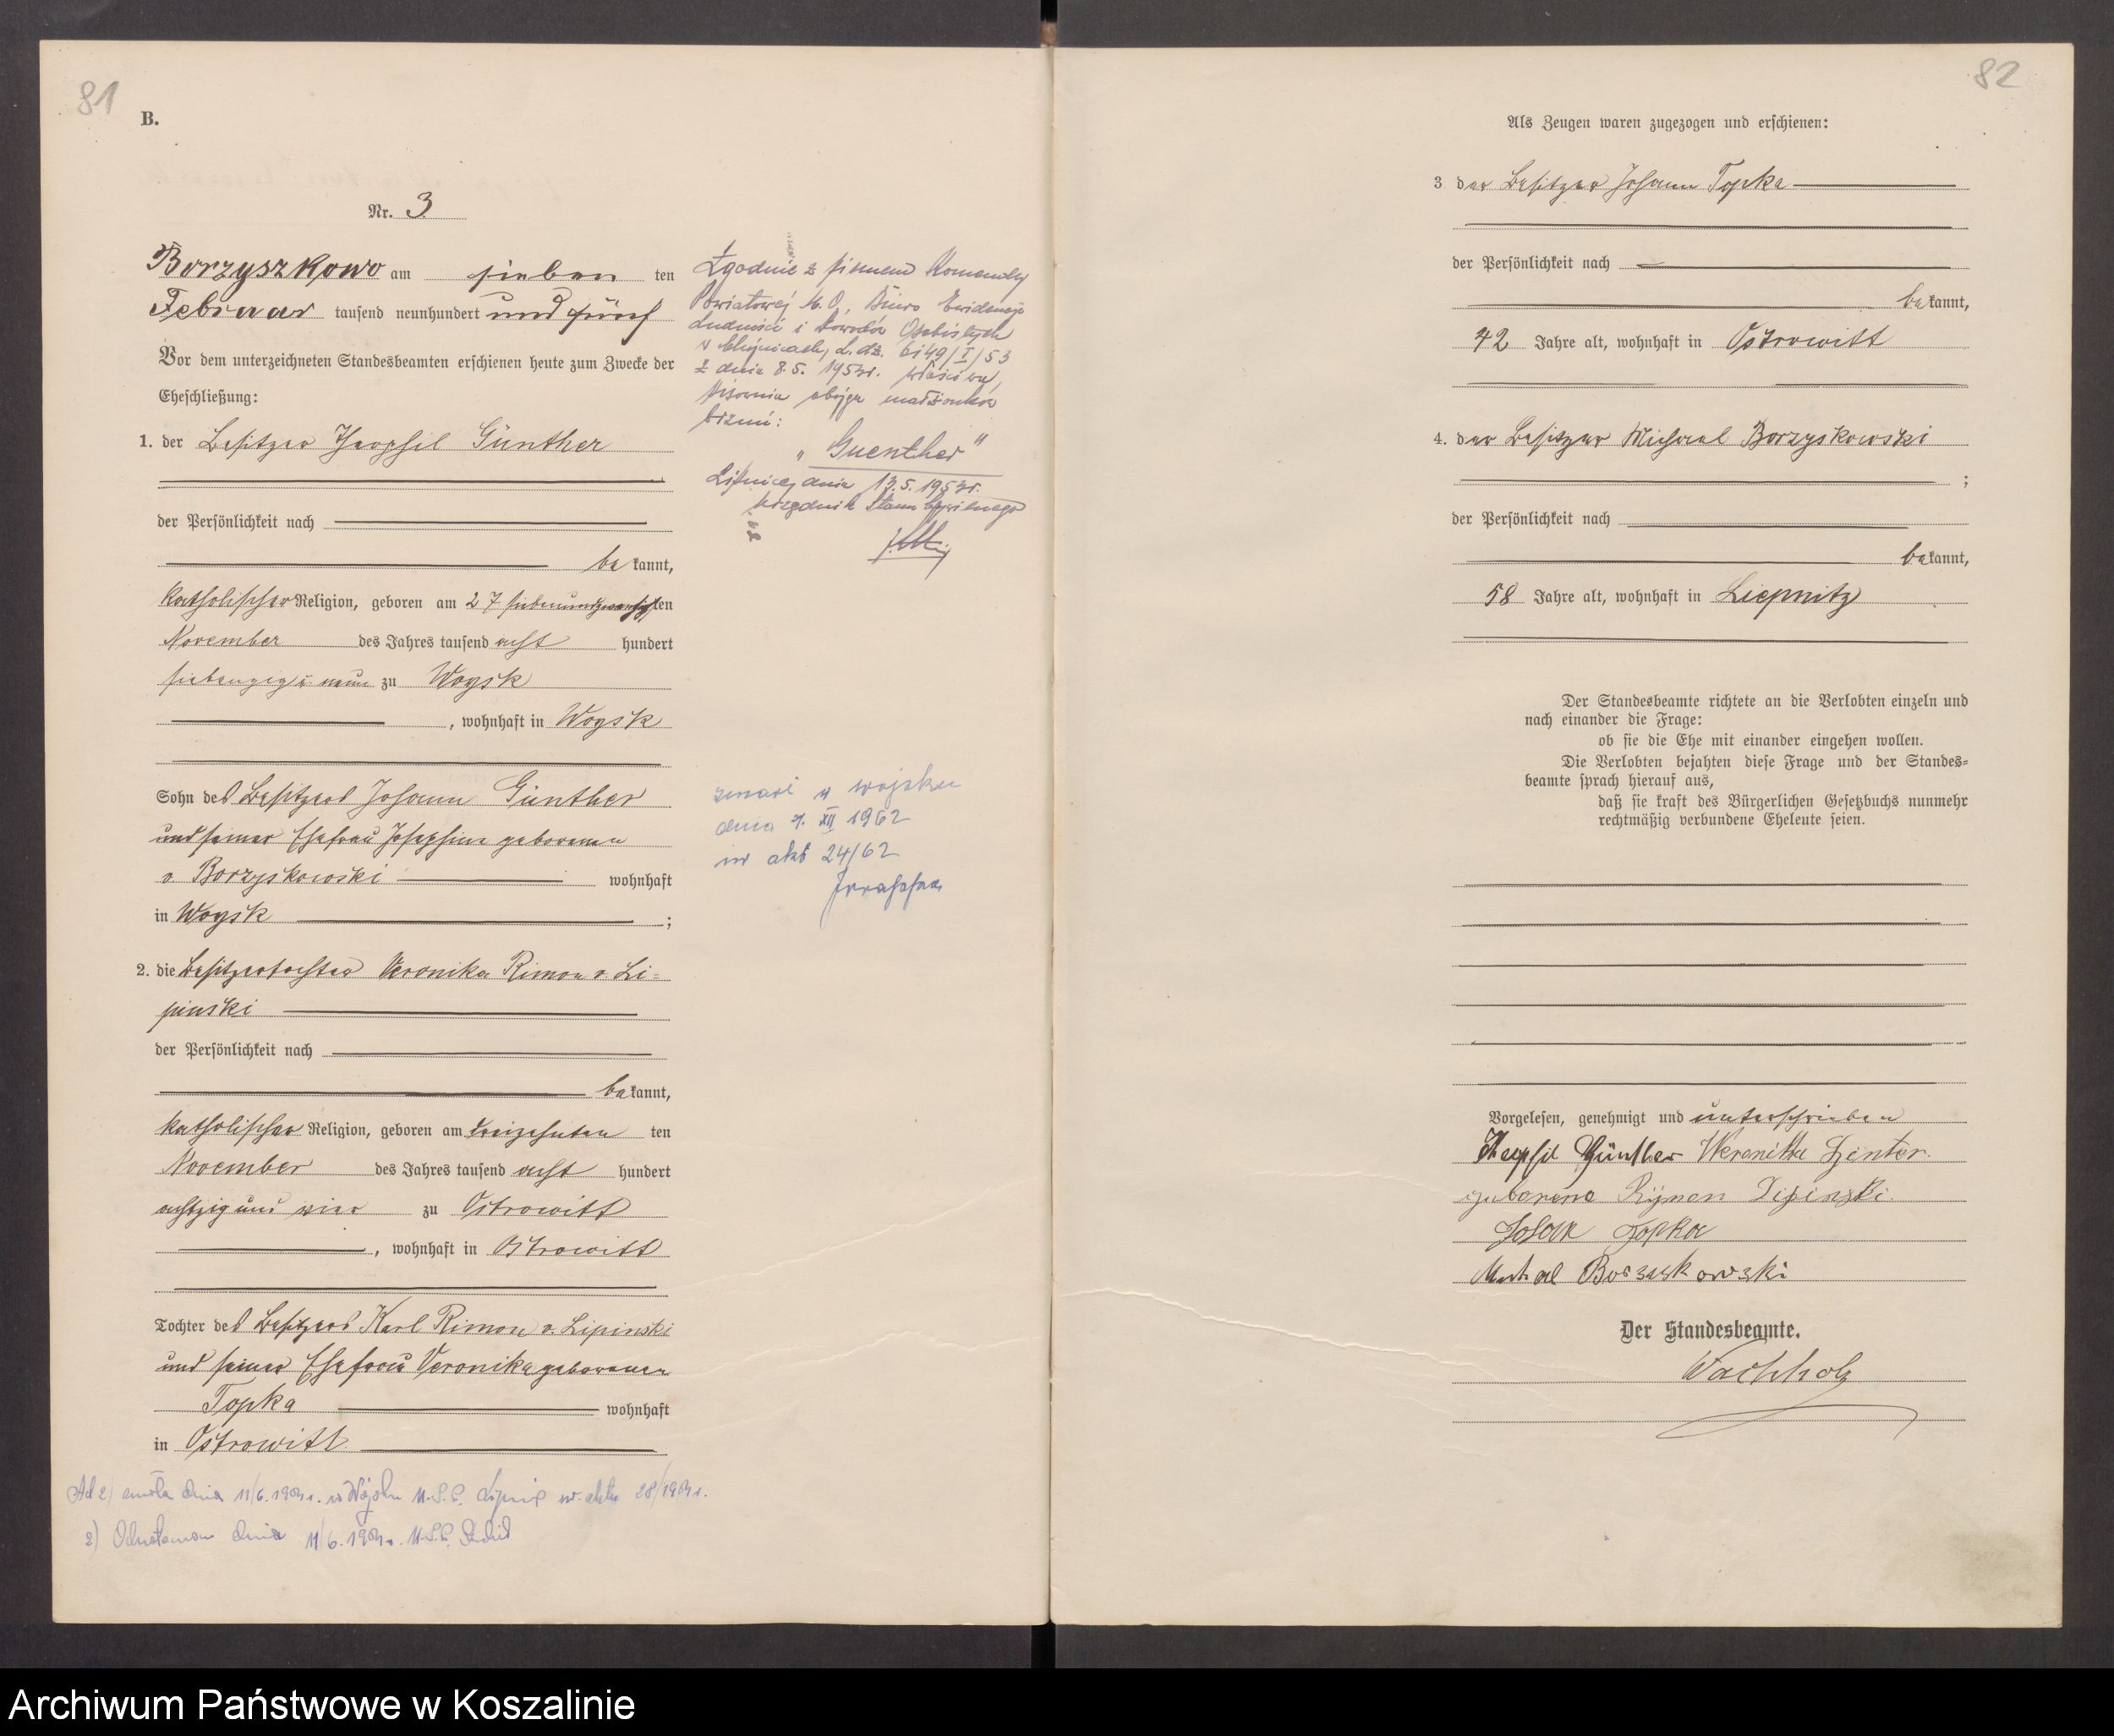 81
B.
Nr. 3
Borzyszkowo am sieben ten
Februar tausend neunhundert und fünf
Vor dem unterzeichneten Standesbeamten erschienen heute zum Zwecke der
Eheschließung:
1. der Besitzer Theophil Günther
der Persönlichkeit nach
be kannt,
katholischer Religion, geboren am 27 siebenundzwanzigsten
November des Jahres tausend acht hundert
siebenzig u neun zu Woysk
, wohnhaft in Woysk
Sohn des Besitzers Johann Günther
und seiner Ehefrau Josephine geborenen
v. Borzyskowski wohnhaft
in Woysk ;
2. die Besitzertochter Veronika Rimon v. Li=
pinski
der Persönlichkeit nach
be kannt,
katholischer Religion, geboren am dreizehnten ten
November des Jahres tausend acht hundert
achtzig und vier zu Ostrowitt
, wohnhaft in Ostrowitt
Tochter des Besitzers Karl Rimon v. Lipinski
und seiner Ehefrau Veronika geborenen
Topka wohnhaft
in Ostrowitt
Zgodnie z pismem Komendy
Powiatowej M.O, Biuro Ewidencji
Ludności i Dowodów Osobistych
w Chojnicach, L.dz. 6149/I/53
z dnia 8.5. 1953r. właściwa
pisownia obojga małżonków
brzmi:
„Guenther"
Lipnica, dnia 13.5.1953r.
Urzędnik Stanu Cywilnego
zmarł w Wojsku
dnia 7. XII 1962
nr akt 24/62
Ad 2) zmarła dnia 11/6. w Wojsku U.S.C. Lipnica nr. aktu
2) dnia 11/6. U.S.C.
82
Als Zeugen waren zugezogen und erschienen:
3 der Besitzer Johann Topka
der Persönlichkeit nach
be kannt,
42 Jahre alt, wohnhaft in Ostrowitt
4. der Besitzer Michael Borzyskowski
;
der Persönlichkeit nach
be kannt,
58 Jahre alt, wohnhaft in Liepnitz
Der Standesbeamte richtete an die Verlobten einzeln und
nach einander die Frage:
ob sie die Ehe mit einander eingehen wollen.
Die Verlobten bejahten diese Frage und der Standes=
beamte sprach hierauf aus,
daß sie kraft des Bürgerlichen Gesetzbuchs nunmehr
rechtmäßig verbundene Eheleute seien.
Vorgelesen, genehmigt und unterschrieben
Theophil Günther Weronika Ginter
geborene Rymon Lipinski
Johan Topka
Michael Borzyskowski
Der Standesbeamte.
Wachholz
Archiwum Państwowe w Koszalinie